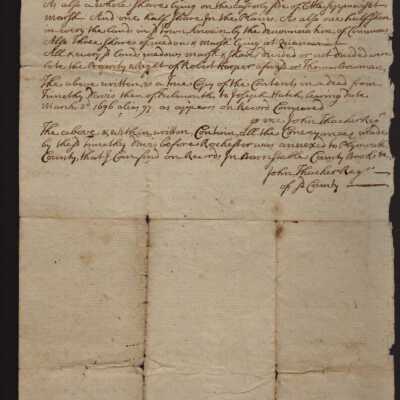 As also a whole share lying on the easterly side of
marsh. And one half share in the Plaines. As also one half share
in every the land in sd Town known by the denomination of Commons
Also three shares of meadow & marsh lying at
All & every sd land meadows marsh & shares divided or not divided were
late the property & Right of Robert Harper
The above written is a true Copy of the Contents in a deed from
Timothy Davis then of to Joseph Hatch, bearing date
March 3d 1696 alias 97 as appears on Record Compared
pr me John Thacher Regr
The above & within written Contain all the Conveyances made
by the sd Timothy Davis before Rochester was annexed to Plymouth
County, that I Can find on Record In Barnstable County Books &c
John Thacher Regr
of sd County